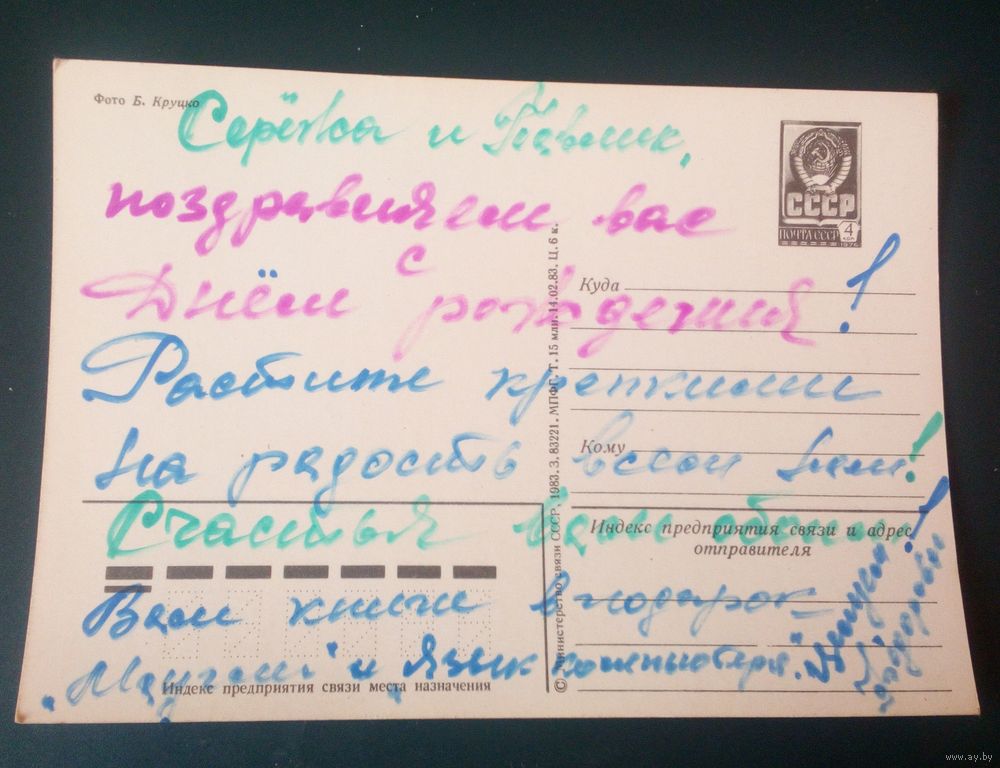 Фото Б. Круцко
Серёжа и Павлик,
поздравляем вас
с
Днём рождения!
Растите крепкими
на радость всем нам!
Счастья вам обоим!
Вам книги в подарок
„Маугли" и „Язык компьютера".
СССР
ПОЧТА СССР 4 коп
1976
Куда
Кому
Индекс предприятия связи и адрес
отправителя
Индекс предприятия связи места назначения
© Министерство связи СССР, 1983. З. 83221. МПФГ. Т. 15 млн. 14.02.83. Ц. 6 к.
www.ay.by